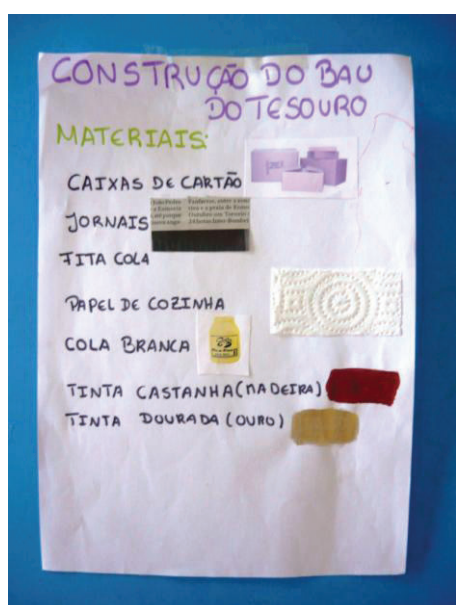 CONSTRUÇÃO DO BAU
DO TESOURO
MATERIAIS:
CAIXAS DE CARTÃO
JORNAIS
FITA COLA
PAPEL DE COZINHA
COLA BRANCA
TINTA CASTANHA (MADEIRA)
TINTA DOURADA (OURO)